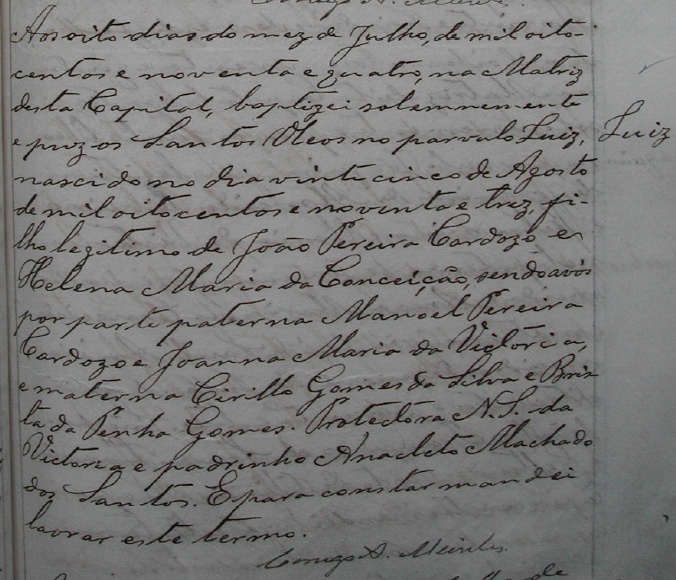 Conego A. Meirelles.
Aos oito dias do mez de Julho, de mil oito-
centos e noventa e quatro, na Matriz
desta Capital, baptizei solemnemente
e puz os Santos Oleos no parvulo Luiz,
Luiz
nascido no dia vinte cinco de Agosto
de mil oitocentos e noventa e trez, fi-
lho legitimo de João Pereira Cardozo e
Helena Maria da Conceição, sendo avós
por parte paterna Manoel Pereira
Cardozo e Joanna Maria da Victória,
e materna Cirillo Gomes da Silva e Briz-
ta da Penha Gomes. Protectora N. S. da
Victoria e padrinho Anacleto Machado
dos Santos. E para constar mandei
lavrar este termo.
Conego A. Meirelles.